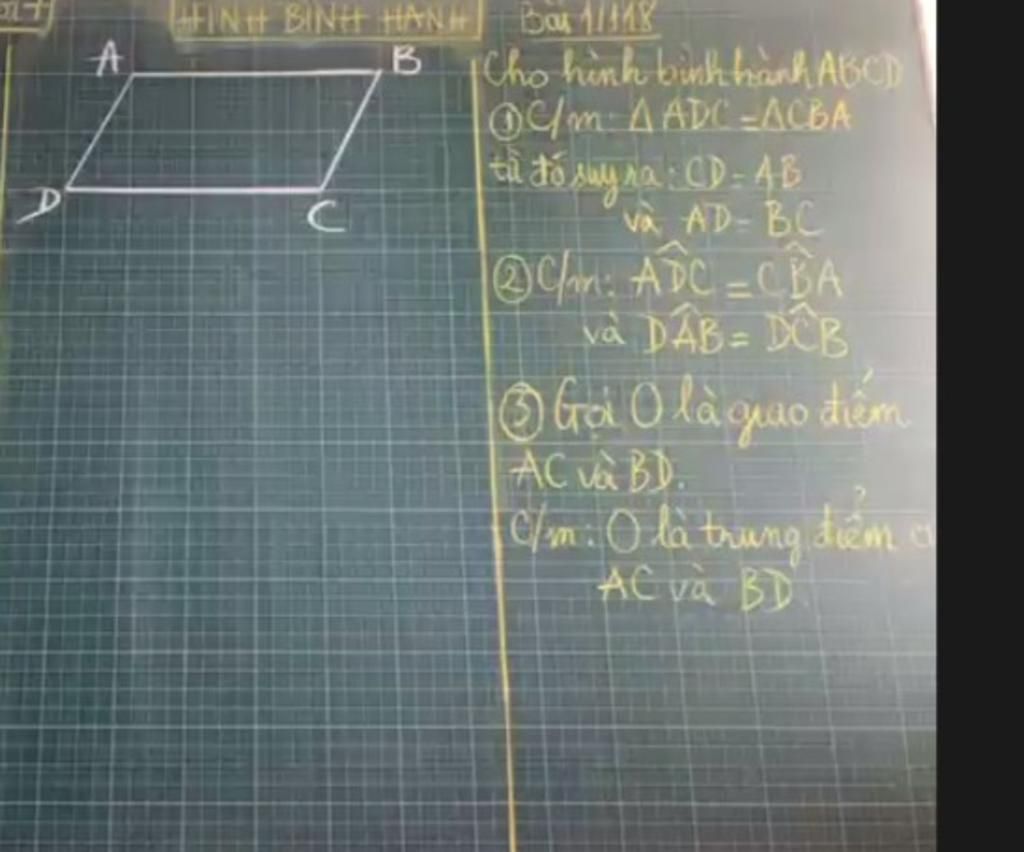 HÌNH BÌNH HÀNH
Bài 1/118
A
B
D
C
Cho hình bình hành ABCD
① C/m: Δ ADC = ΔCBA
từ đó suy ra: CD = AB
và AD = BC
② C/m: ADC = CBA
và DAB = DCB
③ Gọi O là giao điểm
AC và BD.
C/m: O là trung điểm
AC và BD